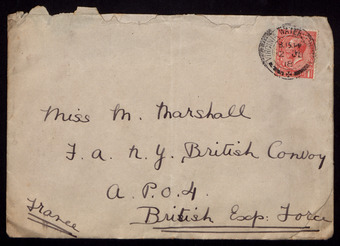 Miss M. Marshall
F. a. n. Y. British Convoy
A. P.O 4.
France
British Exp: Force